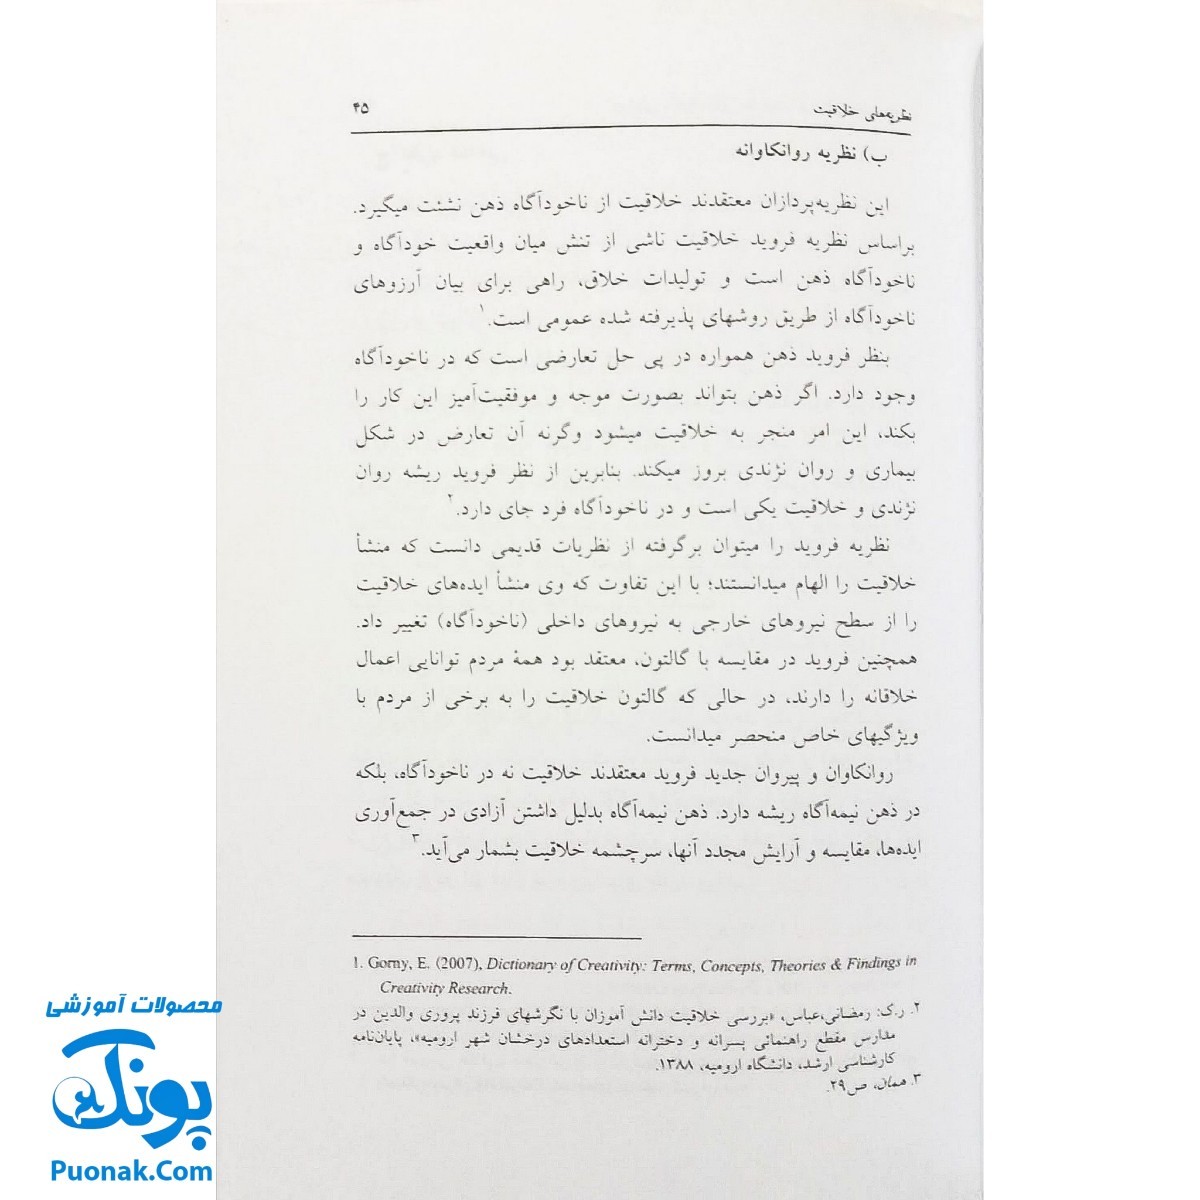 نظریه‌های خلاقیت ۴۵
ب) نظریه روانکاوانه
این نظریه‌پردازان معتقدند خلاقیت از ناخودآگاه ذهن نشئت میگیرد.
براساس نظریه فروید خلاقیت ناشی از تنش میان واقعیت خودآگاه و
ناخودآگاه ذهن است و تولیدات خلاق، راهی برای بیان آرزوهای
ناخودآگاه از طریق روشهای پذیرفته شده عمومی است.۱
بنظر فروید ذهن همواره در پی حل تعارضی است که در ناخودآگاه
وجود دارد. اگر ذهن بتواند بصورت موجه و موفقیت‌آمیز این کار را
بکند، این امر منجر به خلاقیت میشود وگرنه آن تعارض در شکل
بیماری و روان نژندی بروز میکند. بنابرین از نظر فروید ریشه روان
نژندی و خلاقیت یکی است و در ناخودآگاه فرد جای دارد.۲
نظریه فروید را میتوان برگرفته از نظریات قدیمی دانست که منشأ
خلاقیت را الهام میدانستند؛ با این تفاوت که وی منشأ ایده‌های خلاقیت
را از سطح نیروهای خارجی به نیروهای داخلی (ناخودآگاه) تغییر داد.
همچنین فروید در مقایسه با گالتون، معتقد بود همهٔ مردم توانایی اعمال
خلاقانه را دارند، در حالی که گالتون خلاقیت را به برخی از مردم با
ویژگیهای خاص منحصر میدانست.
روانکاوان و پیروان جدید فروید معتقدند خلاقیت نه در ناخودآگاه، بلکه
در ذهن نیمه‌آگاه ریشه دارد. ذهن نیمه‌آگاه بدلیل داشتن آزادی در جمع‌آوری
ایده‌ها، مقایسه و آرایش مجدد آنها، سرچشمه خلاقیت بشمار می‌آید.۳
1. Gorny, E. (2007), Dictionary of Creativity: Terms, Concepts, Theories & Findings in
Creativity Research.
۲. ر.ک: رمضانی،عباس، «بررسی خلاقیت دانش آموزان با نگرشهای فرزند پروری والدین در
مدارس مقطع راهنمائی پسرانه و دخترانه استعدادهای درخشان شهر ارومیه»، پایان‌نامه
کارشناسی ارشد، دانشگاه ارومیه، ۱۳۸۸.
۳. همان، ص۲۹.
محصولات آموزشی
پونک
Puonak.Com